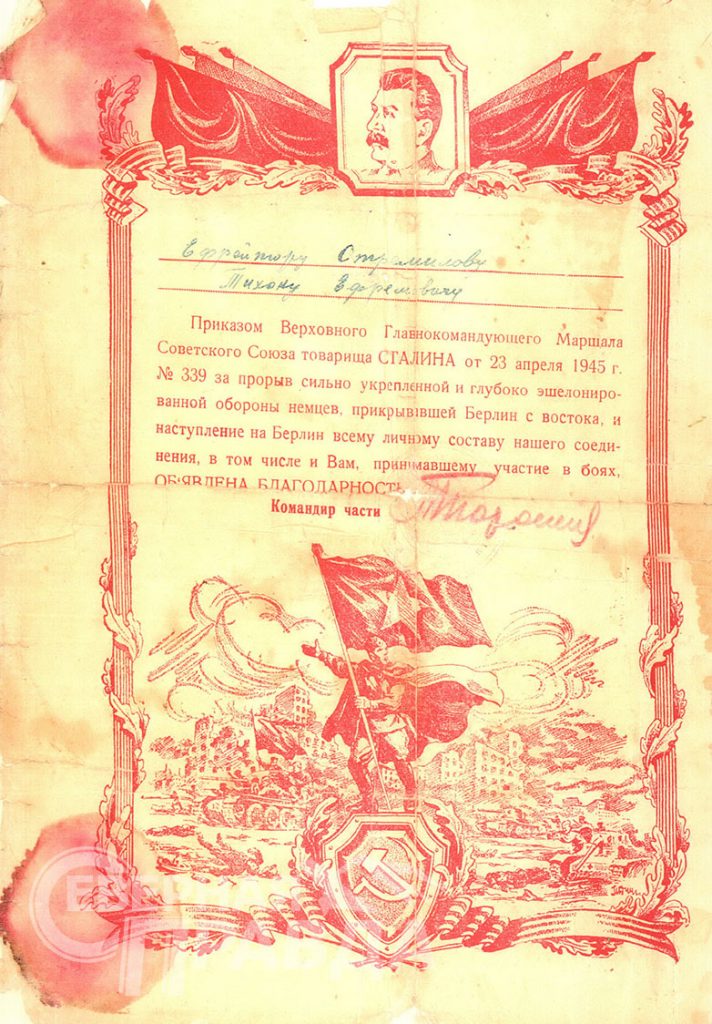 Ефрейтору Стремилову
Тихону Ефремовичу
Приказом Верховного Главнокомандующего Маршала
Советского Союза товарища СТАЛИНА от 23 апреля 1945 г.
№ 339 за прорыв сильно укрепленной и глубоко эшелониро-
ванной обороны немцев, прикрывшей Берлин с востока, и
наступление на Берлин всему личному составу нашего соеди-
нения, в том числе и Вам, принимавшему участие в боях,
ОБ'ЯВЛЕНА БЛАГОДАРНОСТЬ
Командир части
СЕВЕРНАЯ
ПРАВДА